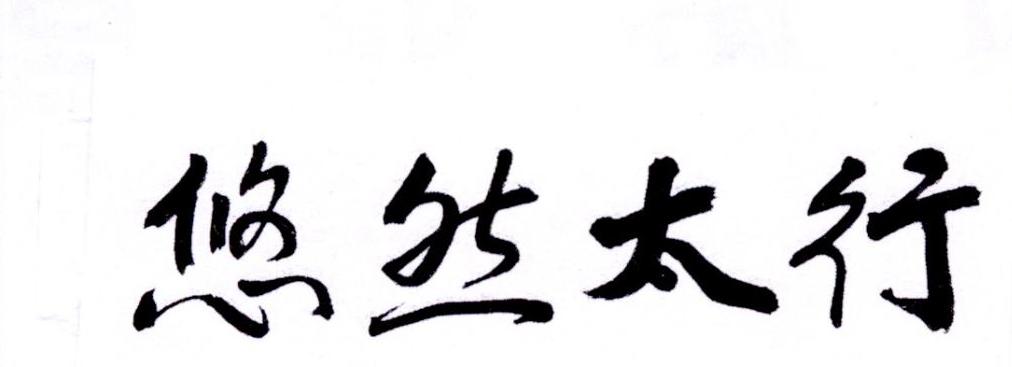 悠然太行